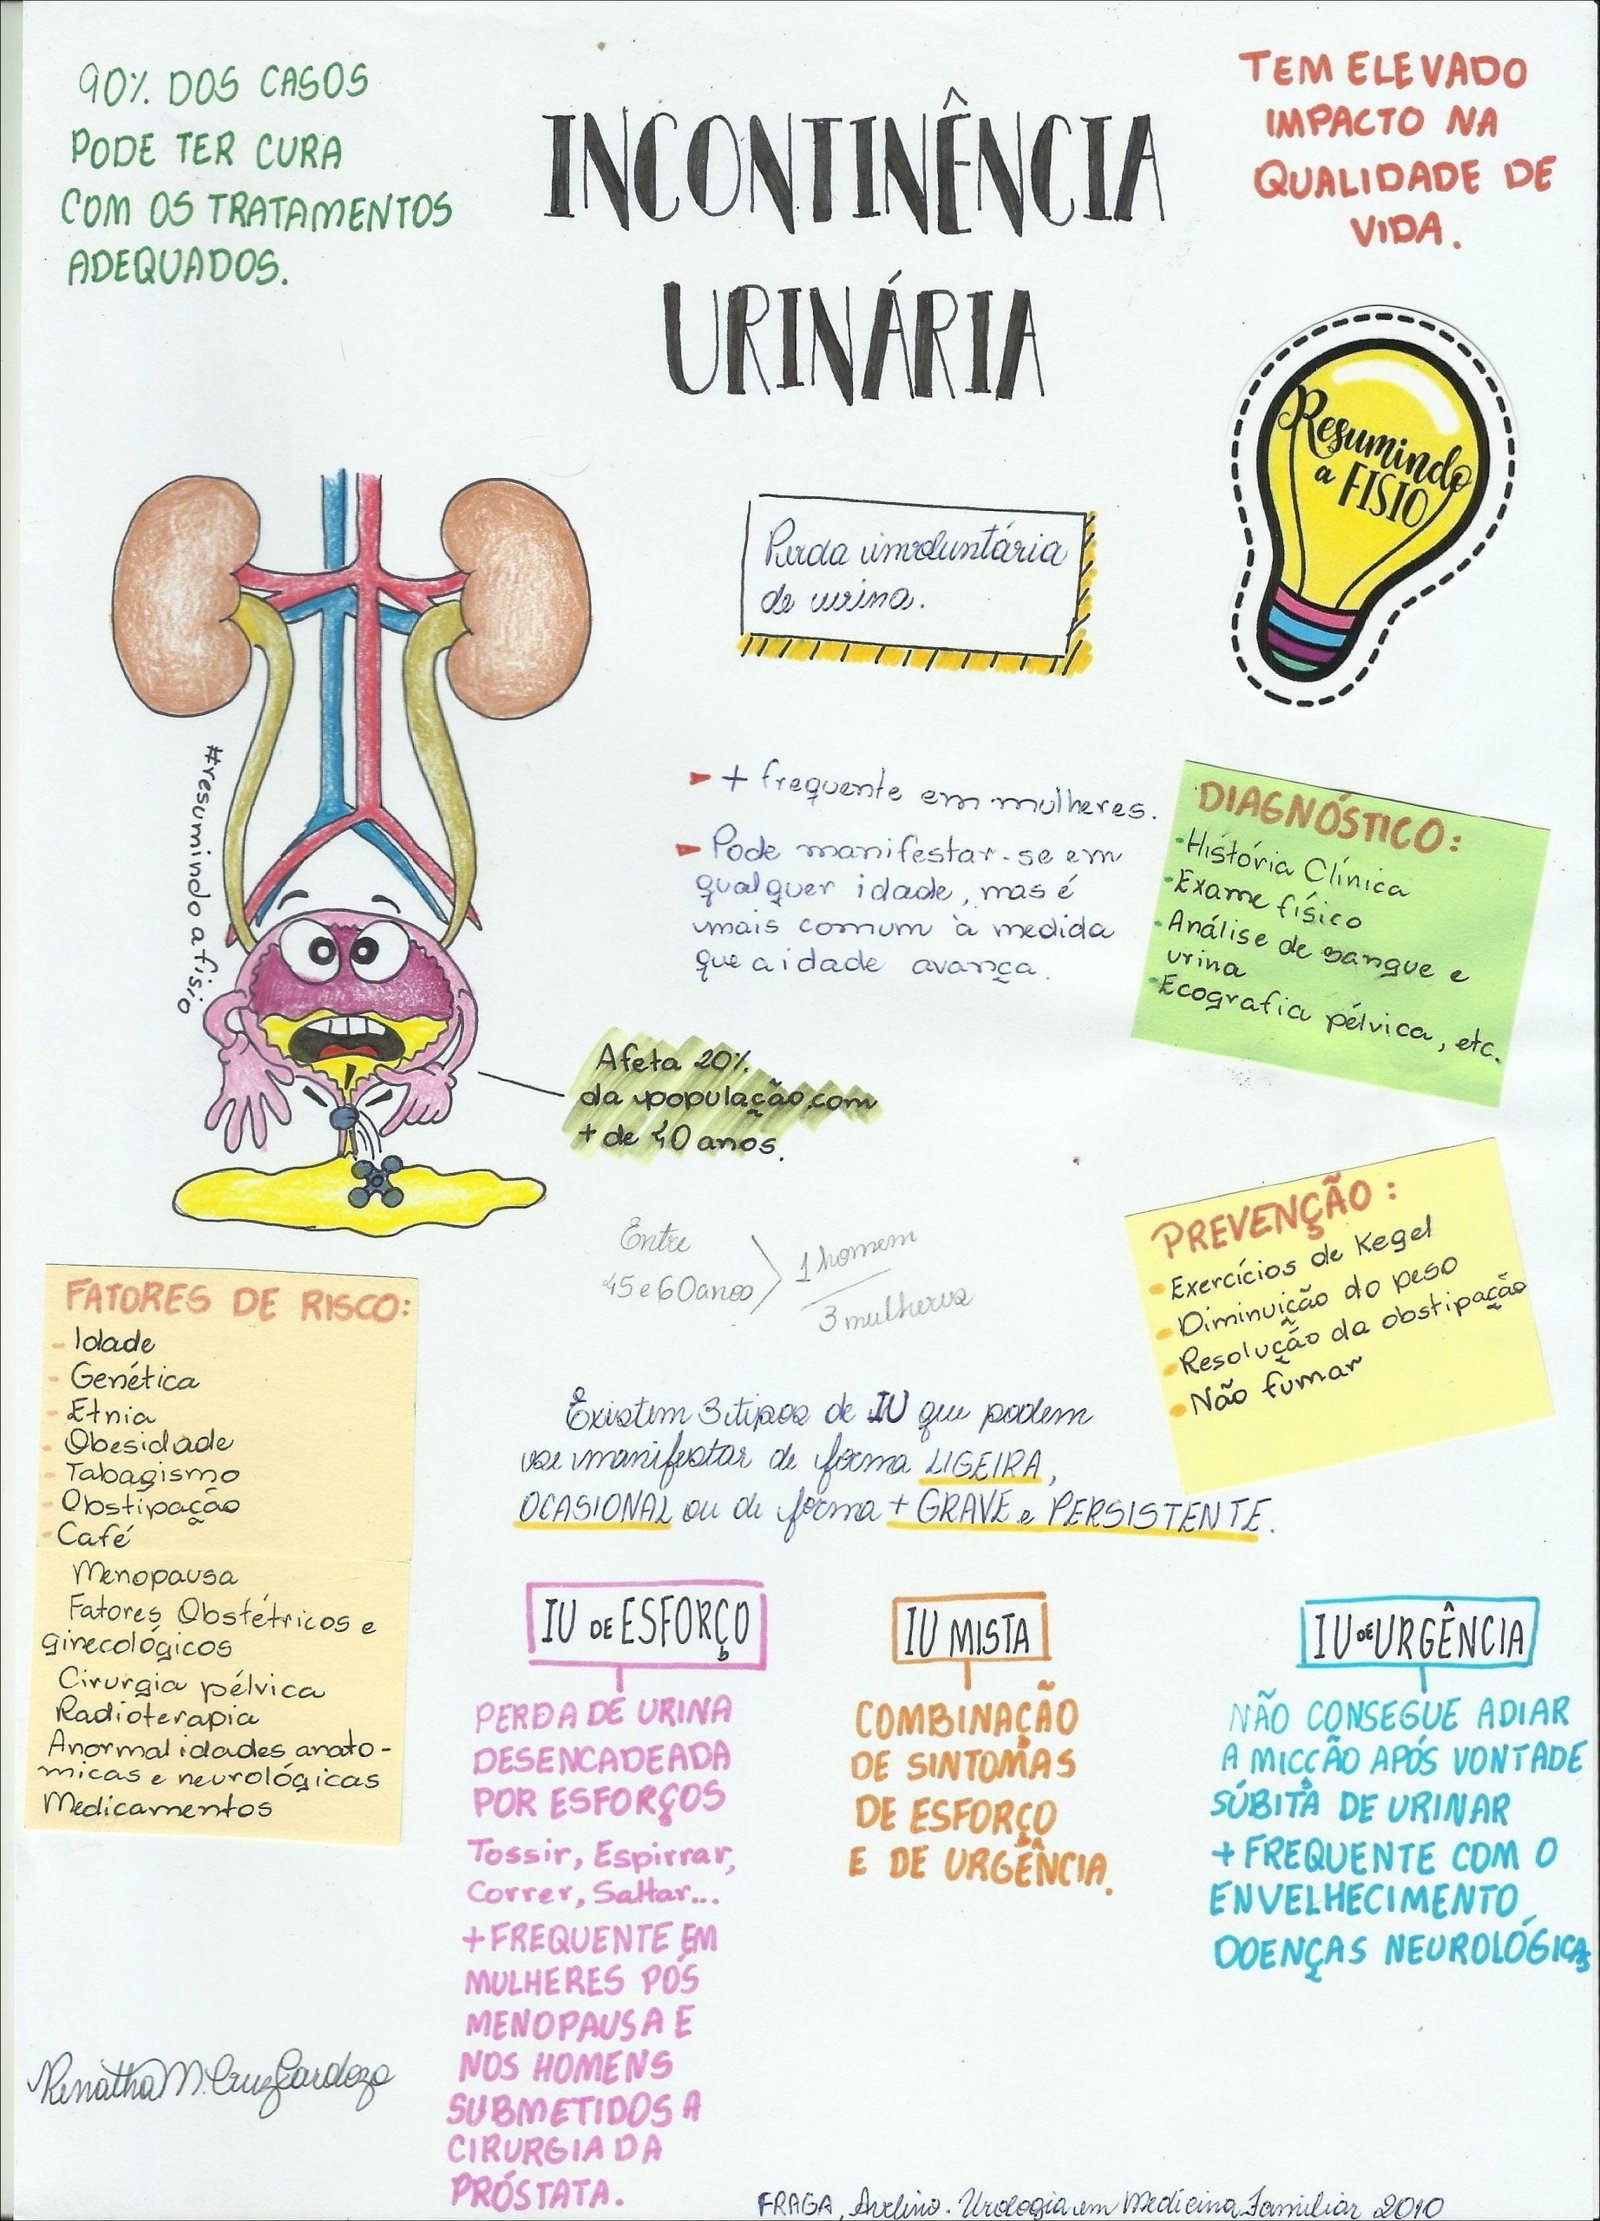 90% DOS CASOS
PODE TER CURA
COM OS TRATAMENTOS
ADEQUADOS.
INCONTINÊNCIA
URINÁRIA
TEM ELEVADO
IMPACTO NA
QUALIDADE DE
VIDA.
Resumindo
a FISIO
Perda involuntária
de urina.
#resumindo a fisio
+ frequente em mulheres.
Pode manifestar-se em
qualquer idade, mas é
mais comum à medida
que a idade avança.
DIAGNÓSTICO:
- História Clínica
- Exame físico
- Análise de sangue e
urina
- Ecografia pélvica, etc.
Afeta 20%
da população com
+ de 40 anos.
Entre
45 e 60 anos
1 homem
3 mulheres
PREVENÇÃO:
Exercícios de Kegel
Diminuição do peso
Resolução da obstipação
Não fumar
FATORES DE RISCO:
- Idade
- Genética
- Etnia
- Obesidade
- Tabagismo
- Obstipação
- Café
Menopausa
Fatores Obstétricos e
ginecológicos
Cirurgia pélvica
Radioterapia
Anormalidades anato-
micas e neurológicas
Medicamentos
Existem 3 tipos de IU que podem
se manifestar de forma LIGEIRA,
OCASIONAL ou de forma + GRAVE e PERSISTENTE.
IU DE ESFORÇO
PERDA DE URINA
DESENCADEADA
POR ESFORÇOS
Tossir, Espirrar,
Correr, Saltar...
+ FREQUENTE EM
MULHERES PÓS
MENOPAUSA E
NOS HOMENS
SUBMETIDOS A
CIRURGIA DA
PRÓSTATA.
IU MISTA
COMBINAÇÃO
DE SINTOMAS
DE ESFORÇO
E DE URGÊNCIA.
IU DE URGÊNCIA
NÃO CONSEGUE ADIAR
A MICÇÃO APÓS VONTADE
SÚBITA DE URINAR
+ FREQUENTE COM O
ENVELHECIMENTO
DOENÇAS NEUROLÓGICAS
Renatha M. Cruz Cardozo
FRAGA, Avelino. Urologia em Medicina Familiar 2010